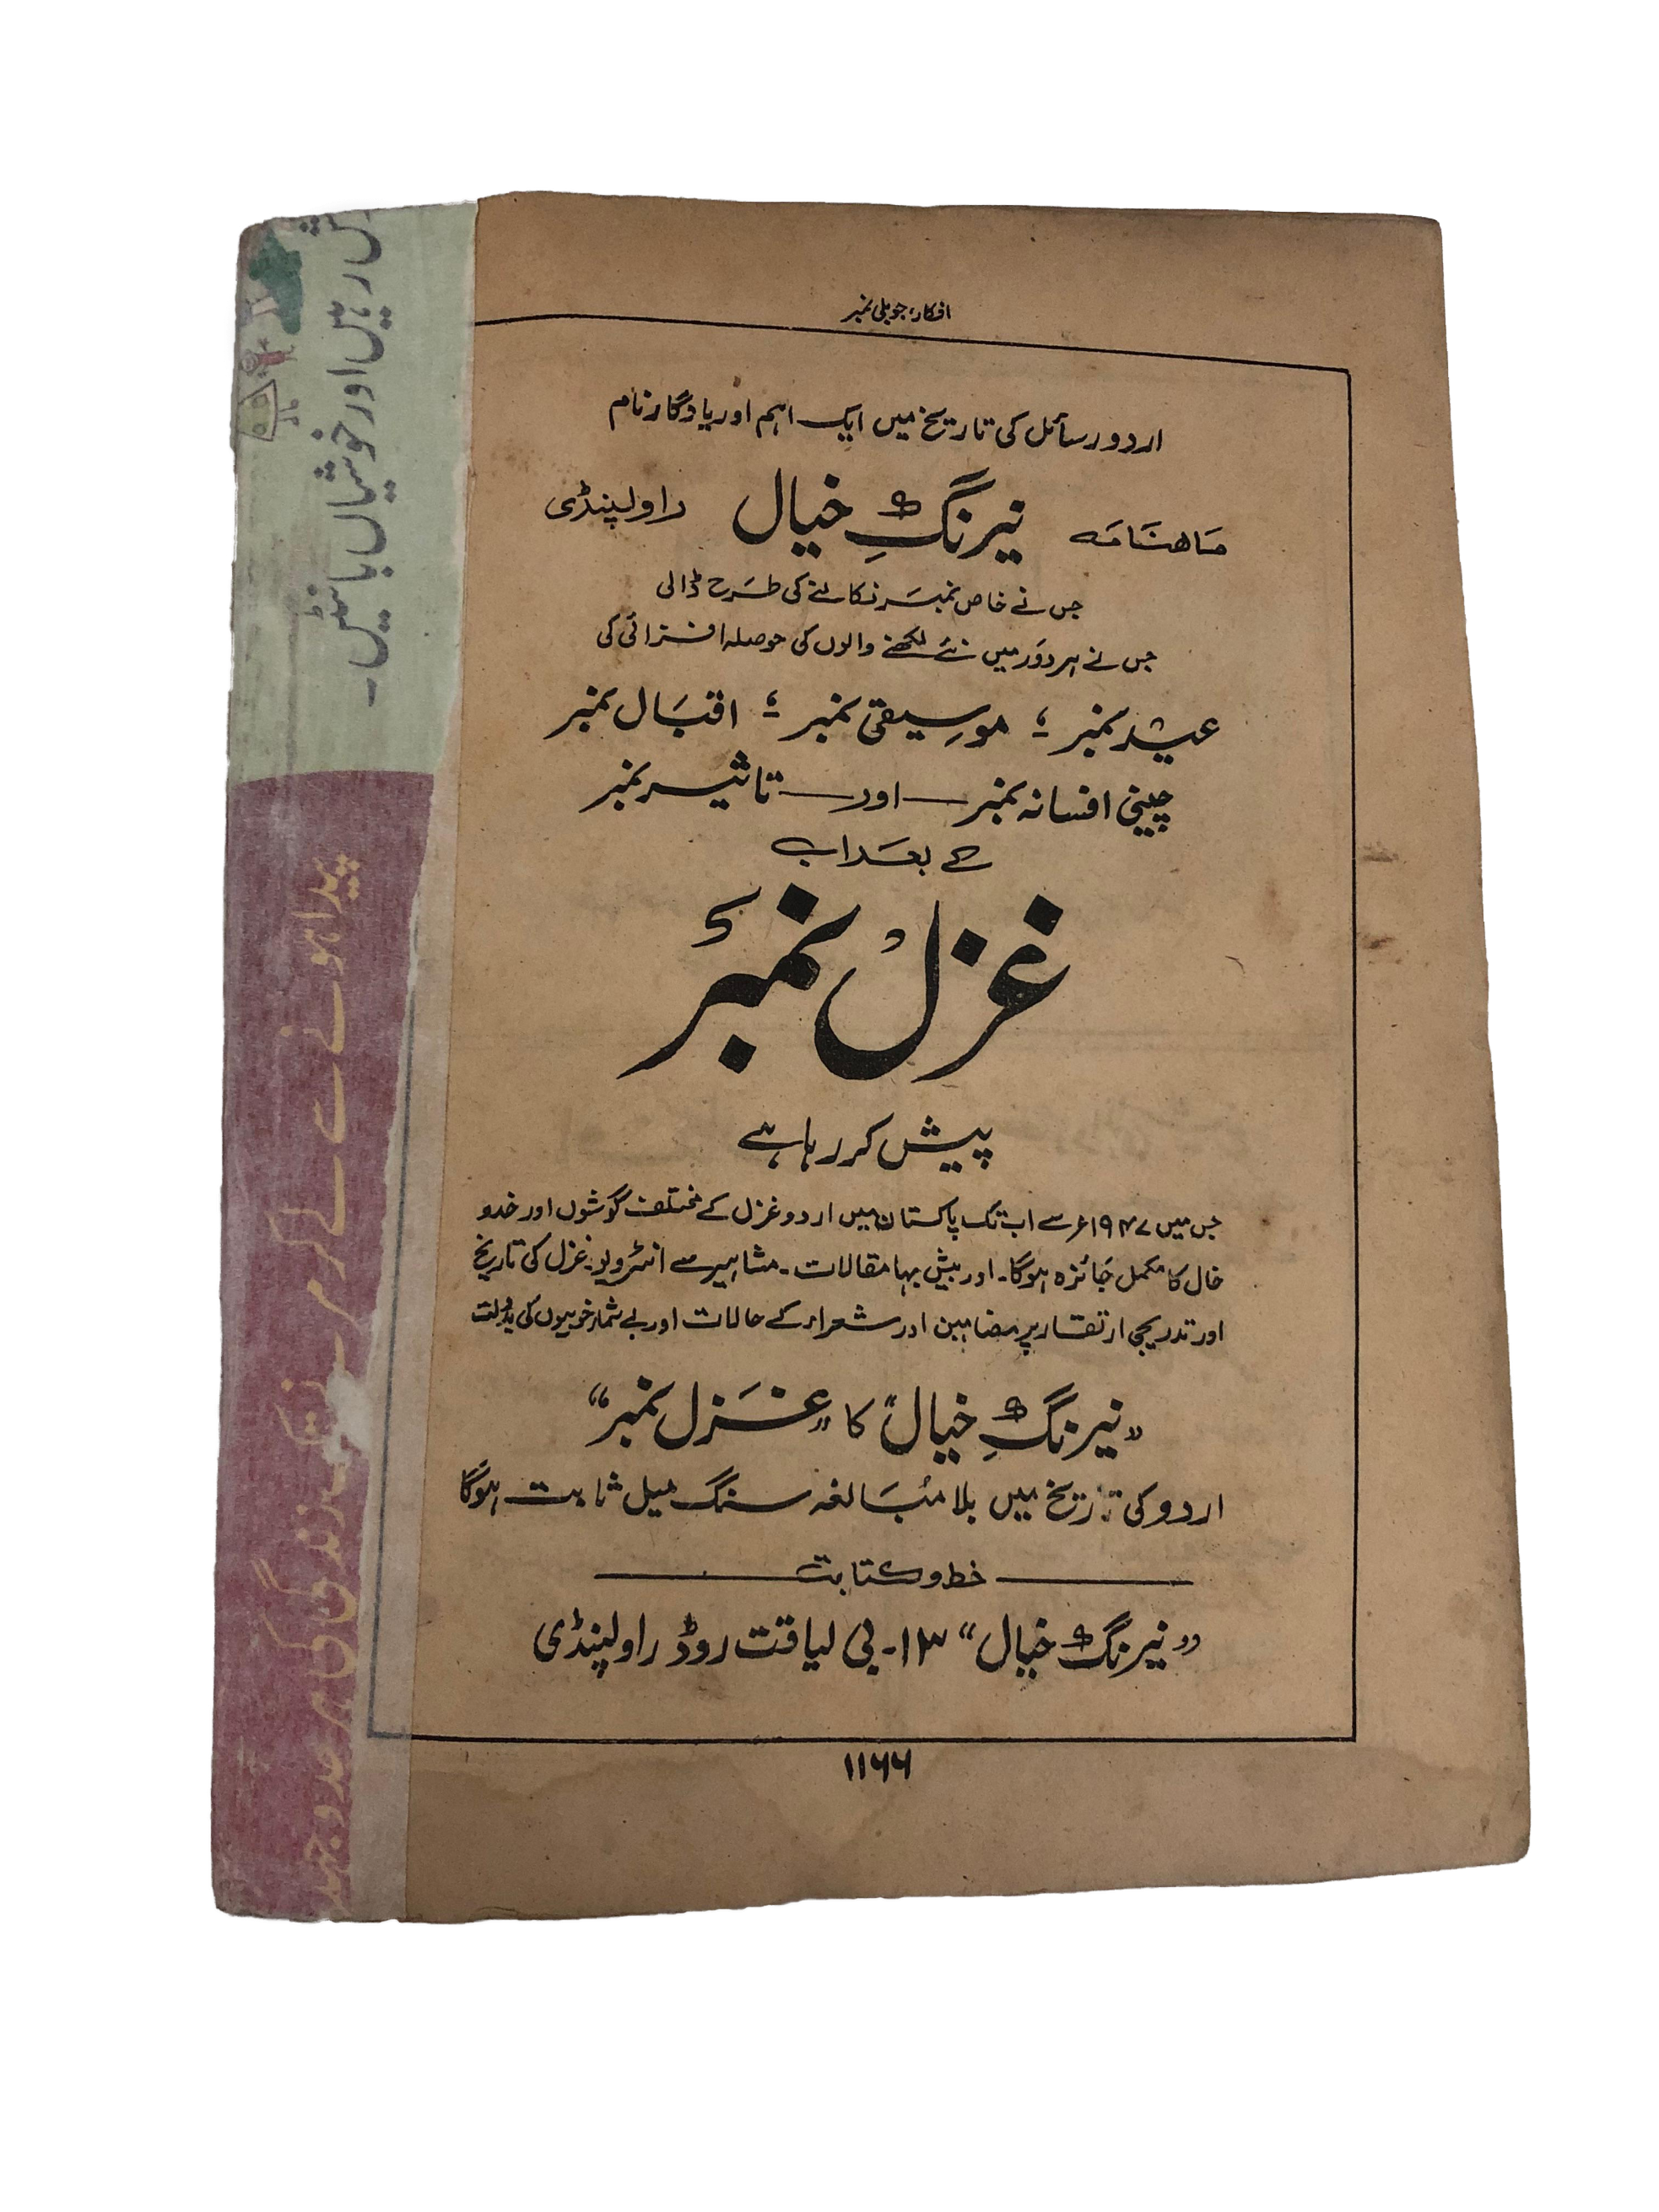 افکار، جوبلی نمبر
اردو رسائل کی تاریخ میں ایک اہم اور یادگار نام
ماہنامہ نیرنگِ خیال راولپنڈی
جس نے خاص نمبر نکالنے کی طرح ڈالی
جس نے ہر دور میں نئے لکھنے والوں کی حوصلہ افزائی کی
عید نمبر ؛ موسیقی نمبر ؛ اقبال نمبر
چینی افسانہ نمبر — اور — تاثیر نمبر
کے بعد اب
غزل نمبر
پیش کر رہا ہے
جس میں ۱۹۴۷ء سے اب تک پاکستان میں اردو غزل کے مختلف گوشوں اور خدو
خال کا مکمل جائزہ ہوگا۔ اور بیش بہا مقالات۔ مشاہیر سے انٹرویو۔ غزل کی تاریخ
اور تدریجی ارتقاء پر مضامین اور شعراء کے حالات اور بے شمار خوبیوں کی بدولت
"نیرنگِ خیال" کا "غزل نمبر"
اردو کی تاریخ میں بلا مُبالغہ سنگ میل ثابت ہوگا
خط و کتابت
"نیرنگ خیال" ۱۳۔ بی لیاقت روڈ راولپنڈی
۱۱۶۶
رہیں اور خوشیاں بانٹیں۔
پیدا ہونے سے لے کر مرنے تک زندگی کی ہر جدوجہد